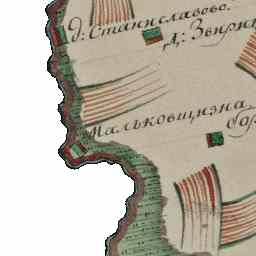 д: Станиславово.
д: Звири
Мальковщизна